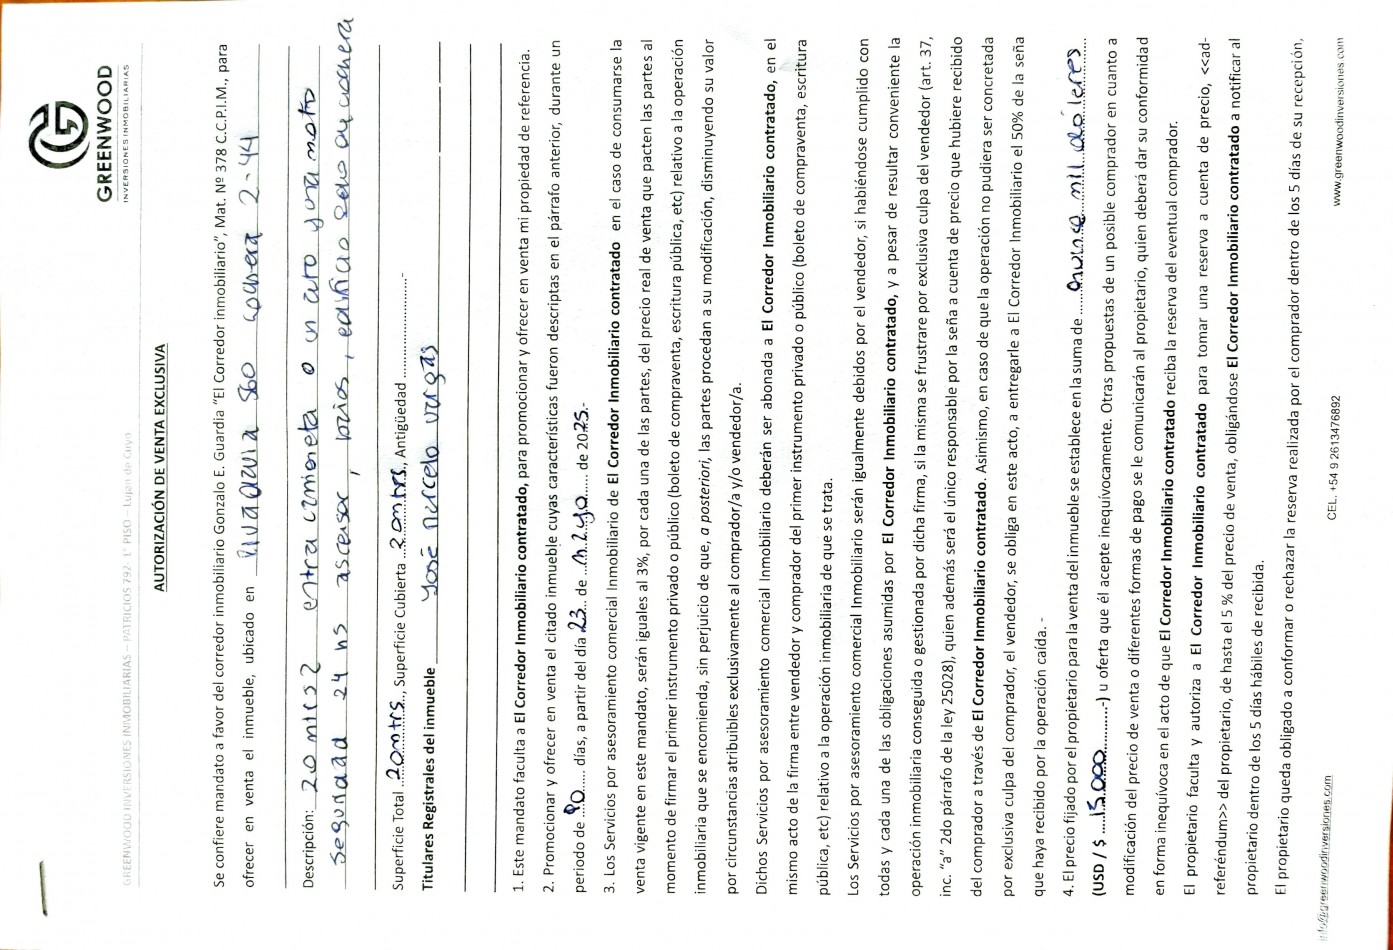 GREENWOOD
INVERSIONES INMOBILIARIAS
GREENWOOD INVERSIONES INMOBILIARIAS – PATRICIOS 792- 1° PISO – Lujan de Cuyo
AUTORIZACIÓN DE VENTA EXCLUSIVA
Se confiere mandato a favor del corredor inmobiliario Gonzalo E. Guardia "El Corredor inmobiliario", Mat. Nº 378 C.C.P.I.M., para
ofrecer en venta el inmueble, ubicado en Rivadavia 560 cochera 2-44
Descripción: 20 mtrs2 entra camioneta o un auto y una moto
Seguridad 24 hs ascensor, baños, edificio solo de cochera
Superficie Total ..20mtrs.., Superficie Cubierta ..20mtrs.., Antigüedad ........................-
Titulares Registrales del inmueble José Marcelo Vargas
1. Este mandato faculta a El Corredor Inmobiliario contratado, para promocionar y ofrecer en venta mi propiedad de referencia.
2. Promocionar y ofrecer en venta el citado inmueble cuyas características fueron descriptas en el párrafo anterior, durante un
periodo de ..90.. días, a partir del día 23... de ..Mayo..... de 2025.-
3. Los Servicios por asesoramiento comercial Inmobiliario de El Corredor Inmobiliario contratado en el caso de consumarse la
venta vigente en este mandato, serán iguales al 3%, por cada una de las partes, del precio real de venta que pacten las partes al
momento de firmar el primer instrumento privado o público (boleto de compraventa, escritura pública, etc) relativo a la operación
inmobiliaria que se encomienda, sin perjuicio de que, a posteriori, las partes procedan a su modificación, disminuyendo su valor
por circunstancias atribuibles exclusivamente al comprador/a y/o vendedor/a.
Dichos Servicios por asesoramiento comercial Inmobiliario deberán ser abonada a El Corredor Inmobiliario contratado, en el
mismo acto de la firma entre vendedor y comprador del primer instrumento privado o público (boleto de compraventa, escritura
pública, etc) relativo a la operación inmobiliaria de que se trata.
Los Servicios por asesoramiento comercial Inmobiliario serán igualmente debidos por el vendedor, si habiéndose cumplido con
todas y cada una de las obligaciones asumidas por El Corredor Inmobiliario contratado, y a pesar de resultar conveniente la
operación inmobiliaria conseguida o gestionada por dicha firma, si la misma se frustrare por exclusiva culpa del vendedor (art. 37,
inc. "a" 2do párrafo de la ley 25028), quien además será el único responsable por la seña a cuenta de precio que hubiere recibido
del comprador a través de El Corredor Inmobiliario contratado. Asimismo, en caso de que la operación no pudiera ser concretada
por exclusiva culpa del comprador, el vendedor, se obliga en este acto, a entregarle a El Corredor Inmobiliario el 50% de la seña
que haya recibido por la operación caída. -
4. El precio fijado por el propietario para la venta del inmueble se establece en la suma de ....quince mil dólares....
(USD / $ ...15.000..........-) u oferta que él acepte inequívocamente. Otras propuestas de un posible comprador en cuanto a
modificación del precio de venta o diferentes formas de pago se le comunicarán al propietario, quien deberá dar su conformidad
en forma inequívoca en el acto de que El Corredor Inmobiliario contratado reciba la reserva del eventual comprador.
El propietario faculta y autoriza a El Corredor Inmobiliario contratado para tomar una reserva a cuenta de precio, <<ad-
referéndum>> del propietario, de hasta el 5 % del precio de venta, obligándose El Corredor Inmobiliario contratado a notificar al
propietario dentro de los 5 días hábiles de recibida.
El propietario queda obligado a conformar o rechazar la reserva realizada por el comprador dentro de los 5 días de su recepción,
info@greenwoodinversiones.com CEL. +54 9 2613476892 www.greenwoodinversiones.com